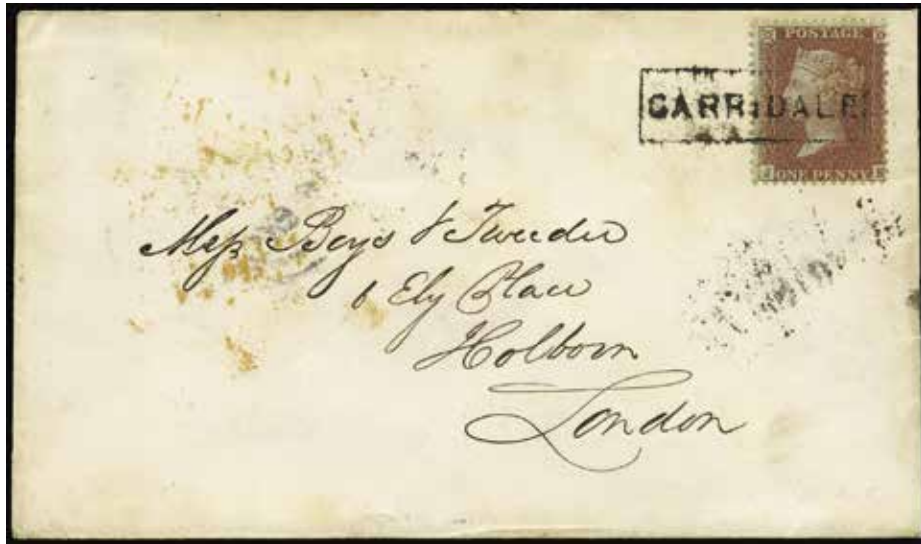 POSTAGE
CARRIDALE
ONE PENNY
Mess Boys & Tweedie
6 Ely Place
Holborn
London